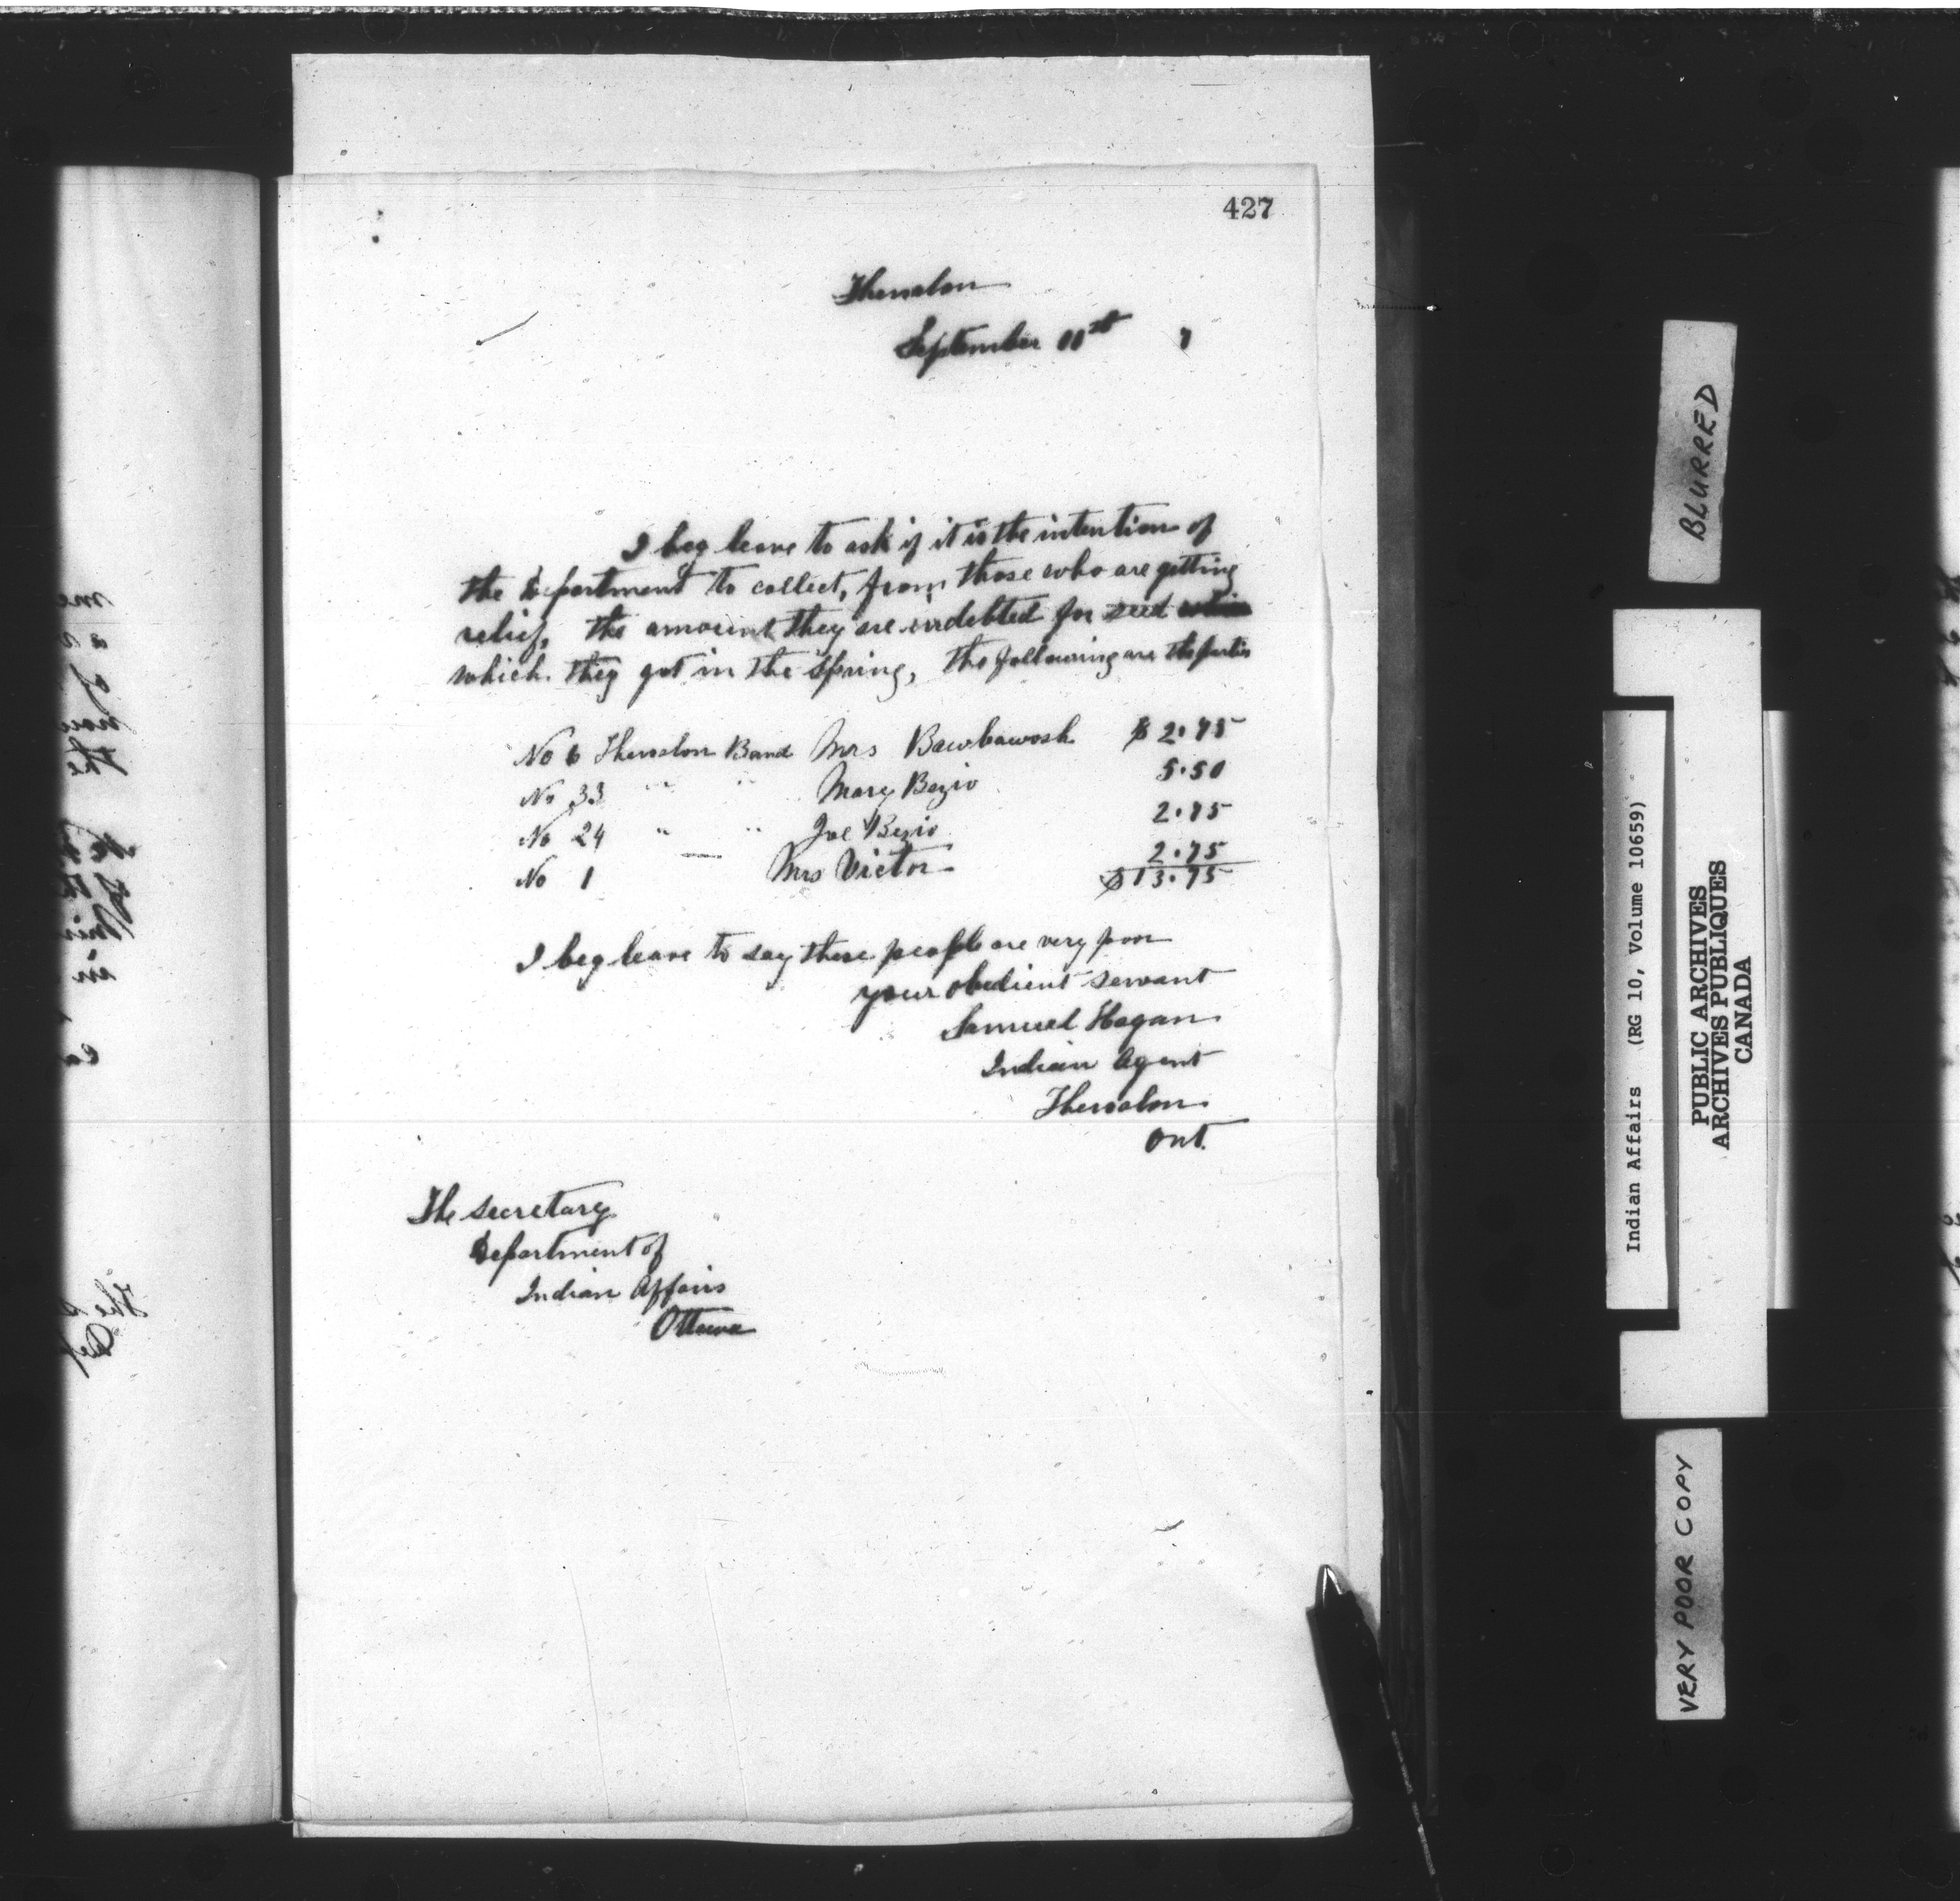 427
Thessalon
September 11th 7
I beg leave to ask if it is the intention of
the Department to collect, from those who are getting
relief, the amount they are indebted for seed
which they got in the spring, the following are the parties
No 6 Thessalon Band Mrs Bawbawosh $2.75
No 33 " " Mary Bezio 5.50
No 24 " " Joe Bezio 2.75
No 1 — Mrs Victor 2.75
$13.75
I beg leave to say these people are very poor
your obedient servant
Samuel Hagan
Indian Agent
Thessalon
Ont.
The Secretary
Department of
Indian Affairs
Ottawa
BLURRED
Indian Affairs (RG 10, Volume 10659)
PUBLIC ARCHIVES
ARCHIVES PUBLIQUES
CANADA
VERY POOR COPY